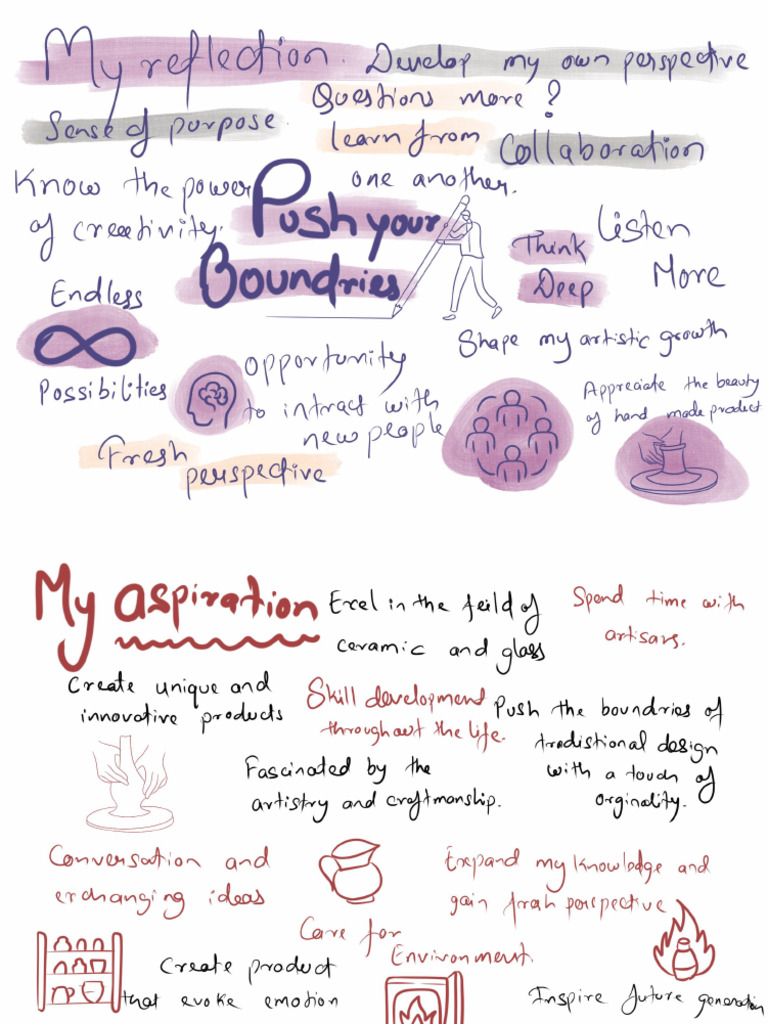 My reflection.
Develop my own perspective
Questions more?
Sense of purpose
learn from
one another.
Collaboration
Know the power
of creativity.
Push your
Boundries
Think
Deep
Listen
More
Endless
Possibilities
Shape my artistic growth
Opportunity
to intract with
new people
Appreciate the beauty
of hand made product
Fresh
perspective
My aspiration
Exel in the feild of
ceramic and glass
Spend time with
artisans.
Create unique and
innovative products
Skill development
throughout the life.
Push the boundries of
tradistional design
with a touch of
orginality.
Fascinated by the
artistry and craftmanship.
Conversation and
exchanging ideas
Expand my knowledge and
gain frah perspective
Care for
Environment.
Create product
that evoke emotion
Inspire future generation